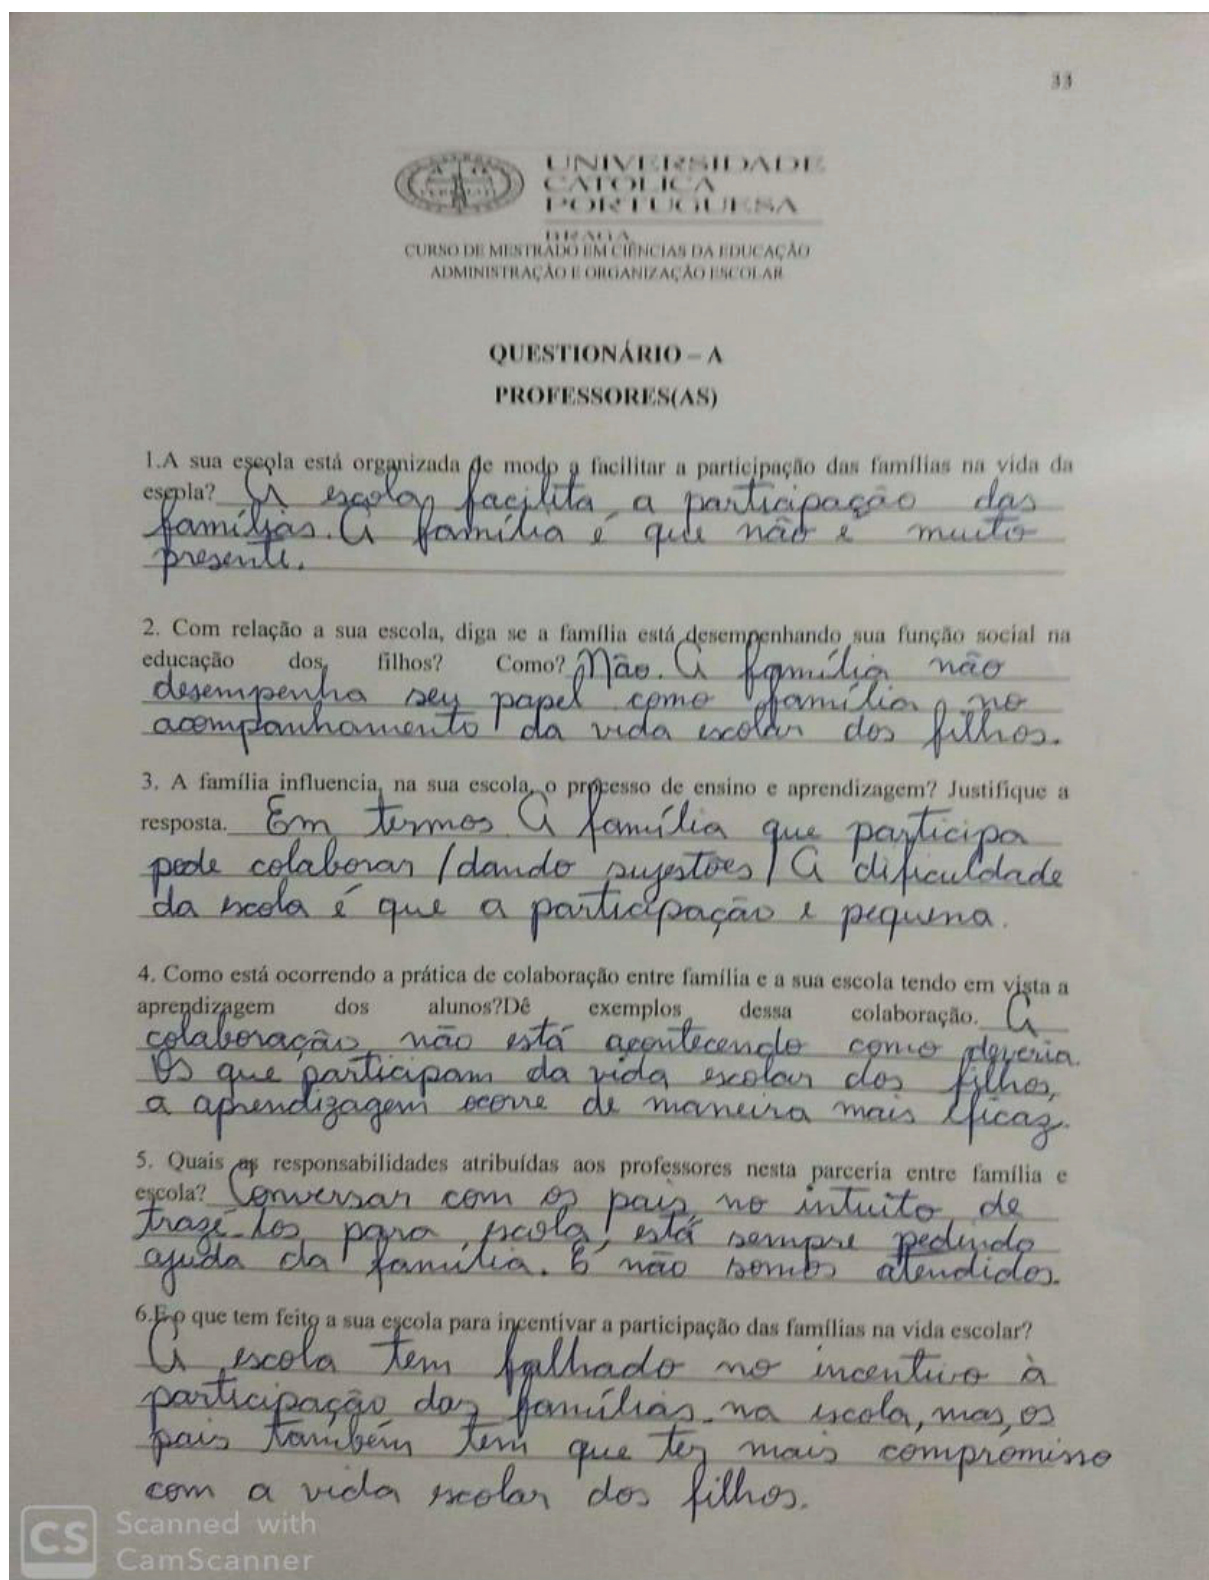 33
UNIVERSIDADE
CATOLICA
PORTUGUESA
BRAGA
CURSO DE MESTRADO EM CIÊNCIAS DA EDUCAÇÃO
ADMINISTRAÇÃO E ORGANIZAÇÃO ESCOLAR
QUESTIONÁRIO – A
PROFESSORES(AS)
1.A sua escola está organizada de modo a facilitar a participação das famílias na vida da
escola? A escola facilita a participação das
famílias. A família é que não é muito
presente.
2. Com relação a sua escola, diga se a família está desempenhando sua função social na
educação dos filhos? Como? Não. A família não
desempenha seu papel como família no
acompanhamento da vida escolar dos filhos.
3. A família influencia, na sua escola, o processo de ensino e aprendizagem? Justifique a
resposta. Em termos. A família que participa
pode colaborar (dando sujestões) A dificuldade
da escola é que a participação é pequena.
4. Como está ocorrendo a prática de colaboração entre família e a sua escola tendo em vista a
aprendizagem dos alunos?Dê exemplos dessa colaboração. A
colaboração não está acontecendo como deveria.
Os que participam da vida escolar dos filhos,
a aprendizagem ocorre de maneira mais eficaz.
5. Quais as responsabilidades atribuídas aos professores nesta parceria entre família e
escola? Conversar com os pais, no intuito de
trazê-los para escola, está sempre pedindo
ajuda da família. E não somos atendidos.
6.E o que tem feito a sua escola para incentivar a participação das famílias na vida escolar?
A escola tem falhado no incentivo à
participação das famílias na escola, mas, os
pais também tem que ter mais compromisso
com a vida escolar dos filhos.
CS Scanned with
CamScanner